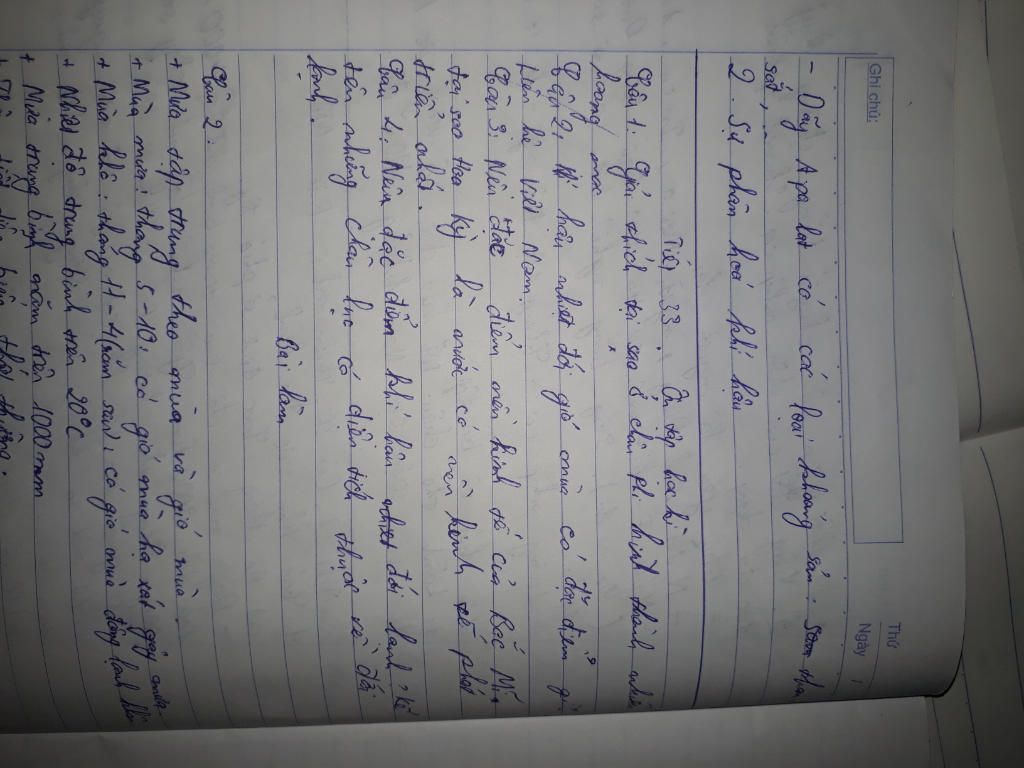 Thứ
Ngày /
Ghi chú:
- Dãy A pa lat có các loại khoáng sản: than,
sắt,
2. Sự phân hoá khí hậu
Tiết 33 Ôn tập học kì
Câu 1. Giải thích tại sao ở châu Phi hình thành nhiều
hoang mạc
Câu 2. Khí hậu nhiệt đới gió mùa có đặc điểm gì.
Liên hệ Việt Nam.
Câu 3. Nêu đặc điểm nền kinh tế của Bắc Mĩ,
tại sao Hoa Kỳ là nước có nền kinh tế phát
triển nhất.
Câu 4. Nêu đặc điểm khí hậu nhiệt đới lạnh, kể
tên những châu lục có diện tích thuộc về đới
lạnh.
Bài làm
Câu 2:
+ Mưa tập trung theo mùa và gió mùa.
+ Mùa mưa: tháng 5-10, có gió mùa hạ gây mưa
+ Mùa khô: tháng 11-4 (năm sau), có gió mùa đông lạnh
+ Nhiệt độ trung bình trên 20°C
+ Mưa trung bình năm trên 1000mm
+ thời tiết diễn biến thất thường.